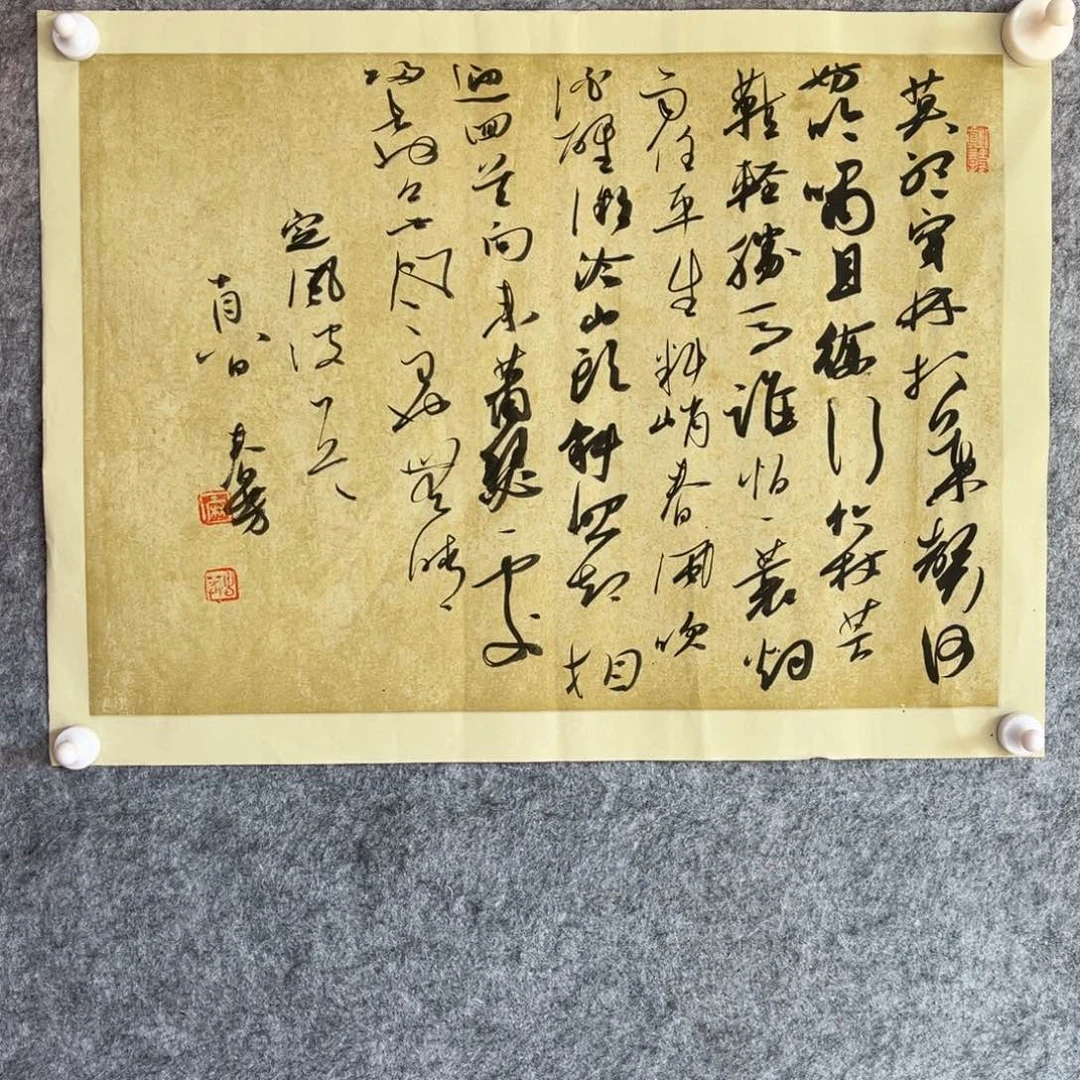 莫聽穿林打葉聲何
妨吟嘯且徐行竹杖芒
鞋輕勝馬誰怕一蓑烟
雨任平生料峭春風吹
酒醒微冷山頭斜照却相
迎回首向來蕭瑟處
歸去也無晴
定風波